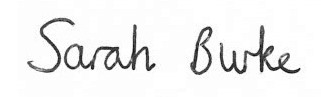 Sarah Burke